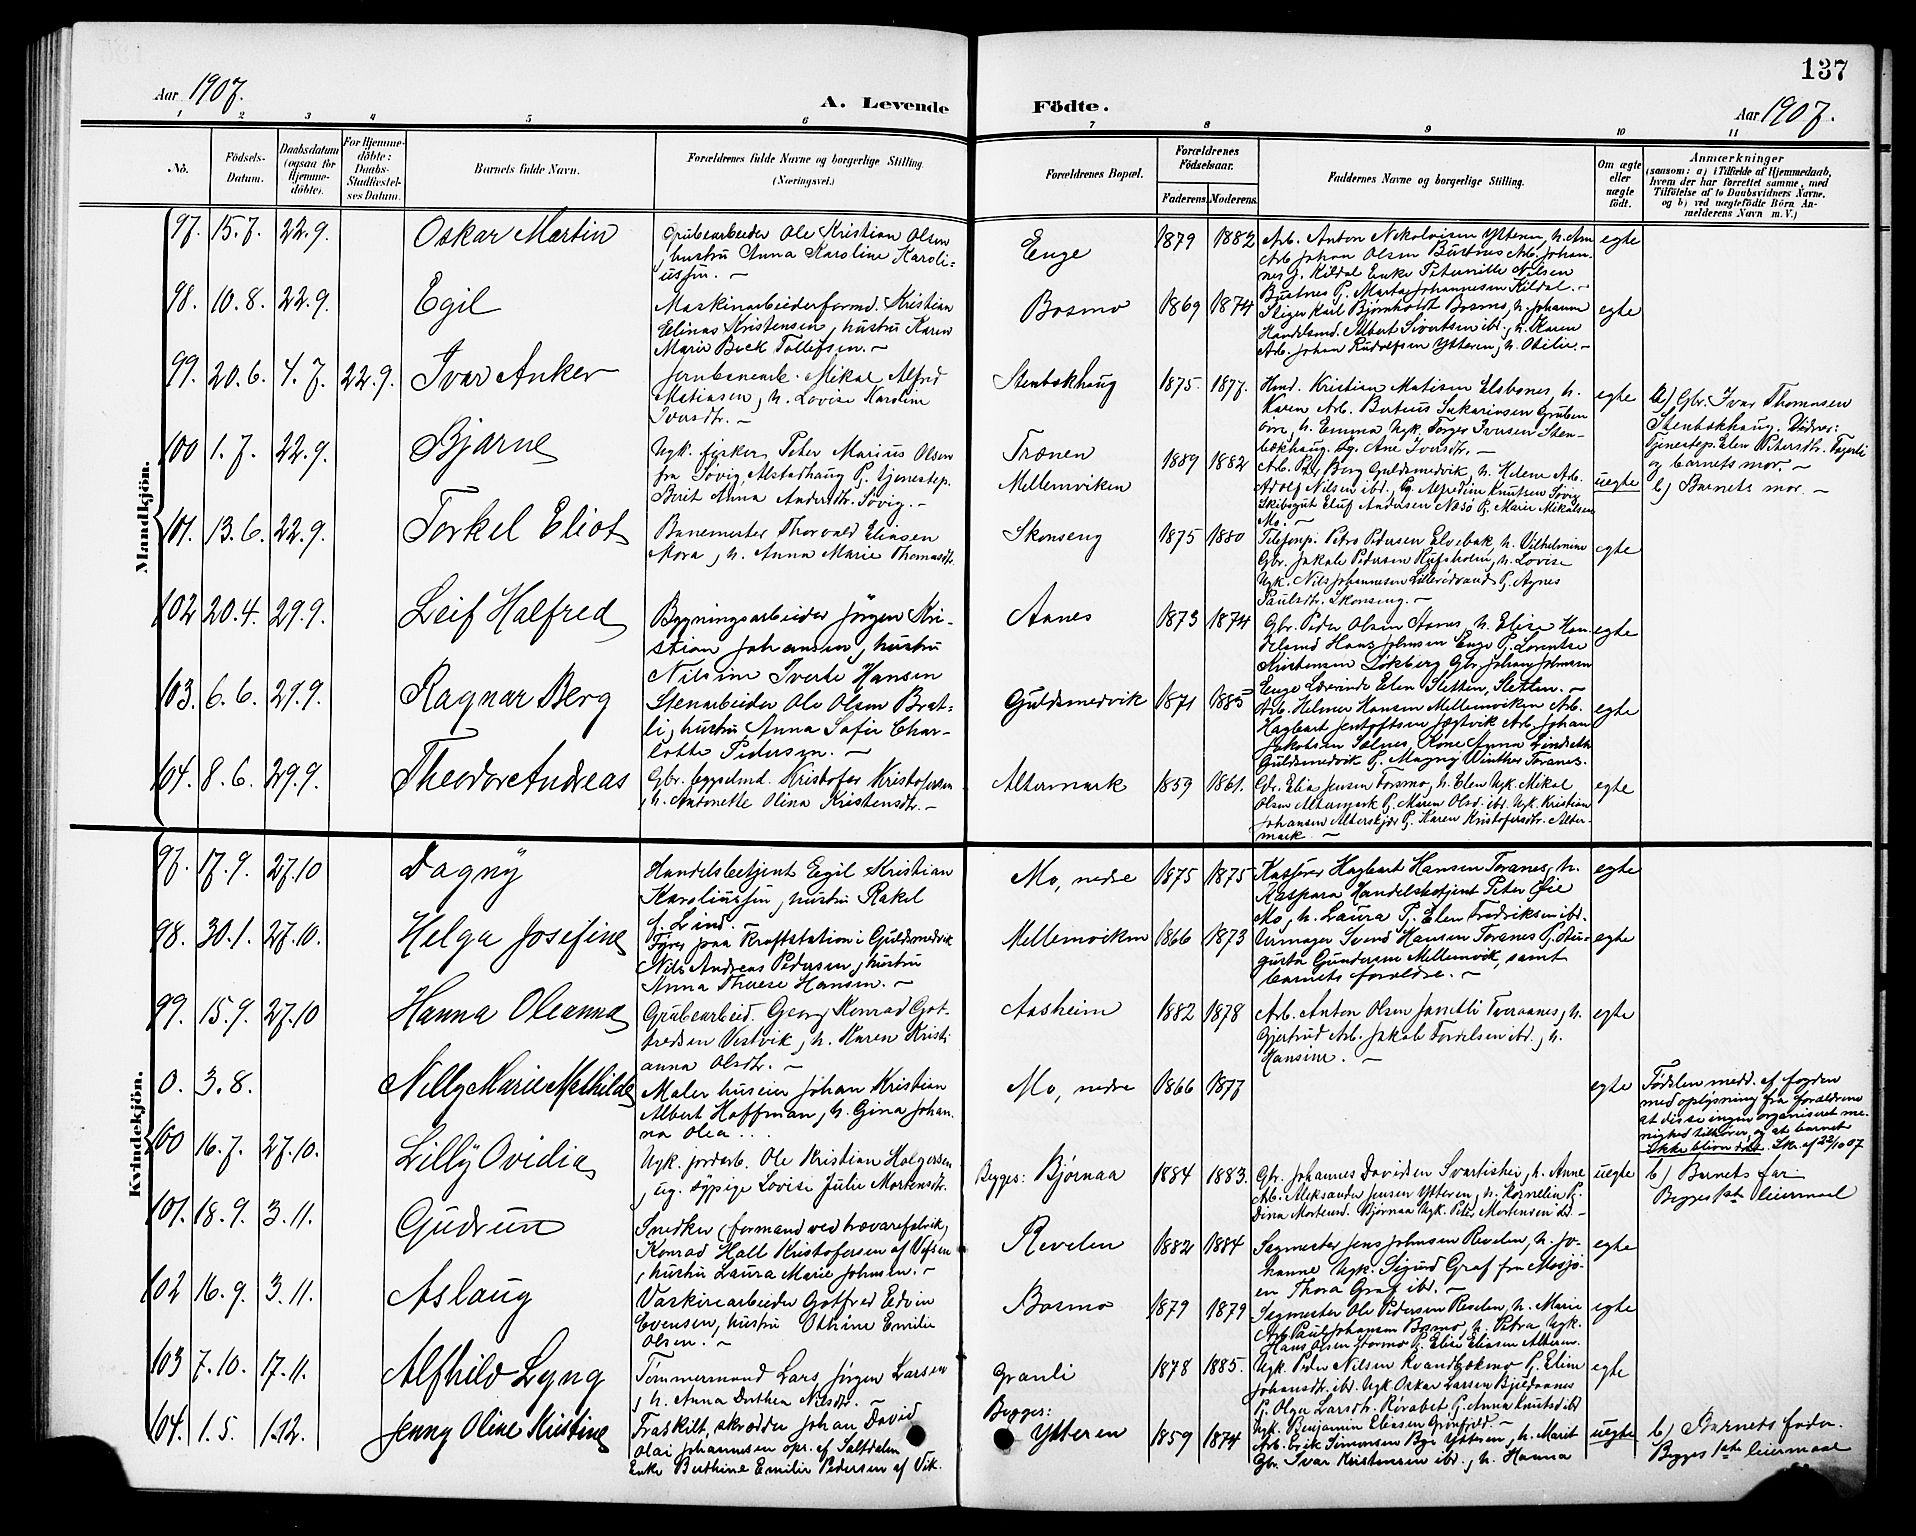 137
Aar 1907.
A. Levende Födte.
Aar 1907.
1 2 3 4 5 6 7 8 9 10 11
No.
Födsels-
Datum.
Daabsdatum
(ogsaa for
Hjemme-
döbte).
For Hjemme-
döbte:
Daabs-
Stadfæstel-
ses Datum.
Barnets fulde Navn.
Forældrenes fulde Navne og borgerlige Stilling.
(Næringsvei.)
Forældrenes Bopæl.
Forældrenes
Födselsaar.
Faderens. Moderens.
Faddernes Navne og borgerlige Stilling.
Om ægte
eller
uægte
födt.
Anmærkninger
(saasom: a) i Tilfælde af Hjemmedaab,
hvem der har forrettet samme, med
Tilföielse af to Daabsvidners Navne,
og b) ved uægtefödte Börn An-
melderens Navn m. V.)
Mandkjön.
97. 15.7. 22.9. Oskar Martin
Grubearbeider Ole Kristian Olsen
, hustru Anna Karoline Karoli-
ussen. —
Enge 1879 1882
Arb. Anton Nikolaisen Ytteren, h. An
Arb. Johan Olsen Bustnes Arb. Johan-
nes J. Kildal Enke Peternille Nilsen
Bustnes P. Marta Johannesen Kildal. —
egte
98. 10.8. 22.9. Egil
Maskinarbeiderformd. Kristian
Elinas Kristensen, hustru Karen
Marie Bock Tollefsen. —
Bosmo 1869 1874
Stiger Karl Bjørnholdt Bosmo, h. Johanne
Handelsmd. Albert Sivertsen ibd., h. Karen
Arb. Johan Rudolfsen Ytteren, h. Otilie. —
egte
99. 20.6. 4.7. 22.9. Ivar Anker
Jernbanearb. Mikal Alfred
Matiasen, h. Lovise Karoline
Iversdtr. —
Stenbækhaug 1875. 1877.
Hmd. Kristian Matisen Elsbones, h.
Karen Arb. Berteus Sakariasen Gruben
øvre, h. Emma Ugk. Torger Iversen Sten-
bækhaug. Pg. Ane Iversdtr. —
egte
a) Gbr. Ivar Thomassen
Stenbækhaug. Vidner:
Tjenestep. Elen Petersdtr. Fagerli
og barnets mor. —
100 1.7. 22.9. Bjarne
Ugk. fisker Peter Marius Olsen
fra Søvig Alstadhaug P. tjenestep.
Berit Anna Andersdtr. Søvig. —
Trænen
Mellemviken
1889 1882
Arb. Berg Guldsmedvik, h. Helene Arb.
Adolf Nilsen ibd., Pg. Alfredine Knutsen Søvig
Skibsgut Eluf Andersen Næsø P. Marie Mikalsen
Mo. —
uegte
b) Barnets mor. —
101. 13.6. 22.9. Torkel Eliot
Banemester Thorvald Eliasen
Mora, h. Anna Marie Thomasdtr.
Skonseng 1875 1880
Telefonp. Petro Pedersen Elvebak, h. Vilhelmine
Gbr. Jakob Pedersen Rufsholm, h. Lovise
Ugk. Nils Johannesen Lillerødvand P. Agnes
Paulsdtr. Skonseng. —
egte
102 20.4. 29.9. Leif Halfred
Bygningsarbeider Jørgen Kri-
stian Johansen, hustru
Nilsine Iverte Hansen
Aanes 1873 1874
Gbr. Peder Olsen Aanes, h. Elise Han-
delsmd Hans Johnsen Enge P. Lorentse
Kristensen Løkberg Gbr. Johan Johnsen
Enge Lærerinde Elen Sletten, Sletten. —
egte
103. 6.6. 29.9. Ragnar Berg
Stenarbeider Ole Olsen Brat-
li, hustru Anna Sofie Char-
lotte Pedersen. —
Guldsmedvik 1871 1885
Arb. Helmer Hansen Mellemviken Arb.
Hagbart Jentoftsen Jægtvik Arb. Johan
Jakobsen Selnes, Kone Anna Lindseth
Guldsmedvik P. Magny Winther Toranes.
egte
104. 8.6. 29.9. Theodor Andreas
Gbr. bygselmd. Kristofer Kristofersen
, h. Antonette Olina Kristensdtr. —
Altermark 1859 1861.
Gbr. Elias Jensen Forsmo, h. Elen Ugk. Mikal
Olsen Altermark P. Maren Olsd. ibd. Ugk. Kristian
Johansen Alterskjær P. Karen Kristofersdtr. Alter-
mark. —
egte
Kvindekjön.
97. 17.9. 27.10 Dagny
Handelsbetjent Egil Kristian
Karoliussen, hustru Rakel
f. Lind. —
Mo, nedre 1875 1875
Kasserer Hagbart Hansen Toranes, h.
Kaspara Handelsbetjent Peter Øie
Mo, h. Laura P. Elen Fredriksen ibd.
egte
98. 30.1. 27.10. Helga Josefine
Fyrer paa kraftstation i Guldsmedvik
Nils Andreas Pedersen, hustru
Anna Therese Hansen. —
Mellemviken 1866 1873
Urmager Svend Hansen Toranes P. Au-
gusta Gundersen Mellemvik, samt
barnets forældre. —
egte
99. 15.9. 27.10 Hanna Oleanna
Grubearbeid. Georg Konrad Got-
fredsen Vestvik, h. Karen Kristi-
anna Olsdtr. —
Aasheim 1882 1878
Arb. Anton Olsen Jamtli Tveraanes, h.
Gjertrud Arb. Jakob Tordelsen ibd., h.
Hansine. —
egte
0. 3.8. Nelly Marie Mathilde
Maler huseier Johan Kristian
Albert Hoffman, h. Gina Johan-
na Olea ...
Mo, nedre 1866 1877
egte
Fødslen medd. af fogden
med oplysning fra forældrene
at disse ingen organiseret me-
nighed tilhører, og at barnet
ikke blev døbt. Skr. af 22/10 07
100 16.7. 27.10. Lilly Ovidia
Ugk. jordarb. Ole Kristian Holgersen
, ug. sypige Lovise Julie Mortensdtr.
Begges: Bjørnaa 1884 1883.
Gbr. Johannes Davidsen Svartisher, h. Anne
Arb. Aleksander Jensen Ytteren, h. Kornelia P.
Dina Mortensd. Bjørnaa Ugk. Peter Mortensen ibd. —
uegte
b) Barnets far
Begges 1ste leiermaal
101. 18.9. 3.11. Gudrun
Snedker (formand ved trævarefabrik,
Konrad Hall Kristofersen af Vefsen
, hustru Laura Marie Johnsen. —
Revelen 1882 1884
Sagmester Jens Johnsen Revelen, h. Jo-
hanne Ugk. Sigurd Graf fra Mosjø-
en Thora Graf ibd. —
egte
102 16.9. 3.11. Aslaug
Vaskeriearbeider Gotfred Edvin
Evensen, hustru Othine Emilie
Olsen. —
Bosmo 1879 1879
Sagmester Ole Pedersen Revelen, h. Marie
Arb. Paul Johansen Bosmo, h. Petra Ugk.
Hans Olsen Forsmo P. Elise Eliasen Alteren.
egte
103 7.10. 17.11. Alfhild Lyng
Tømmermand Lars Jørgen Larsen
, h. Anna Dorthea Nilsdtr. —
Granli 1878 1885.
Ugk. Peder Nilsen Kvandbækmo P. Eline
Johansdtr. ibd. Ugk Oskar Larsen Bjeldaanes
P. Olga Larsdtr. Røvabet P. Anna Knutsd. ibd
Ugk. Benjamin Eliasen Grønfjeld. —
egte
104. 1.5. 1.12. Jenny Oline Kristine
Fraskilt, skrædder Johan David
Olai Johannesen opr. af Saltdalen
Enke Berthine Emilie Pedersen af Vik.
Begges:
Ytteren 1859 1874
Arb. Erik Simonsen Bye Ytteren, h. Marit
Gbr. Ivar Kristensen ibd., h. Hanna
uegte
b) Barnets fader
Begges 1ste leiermaal